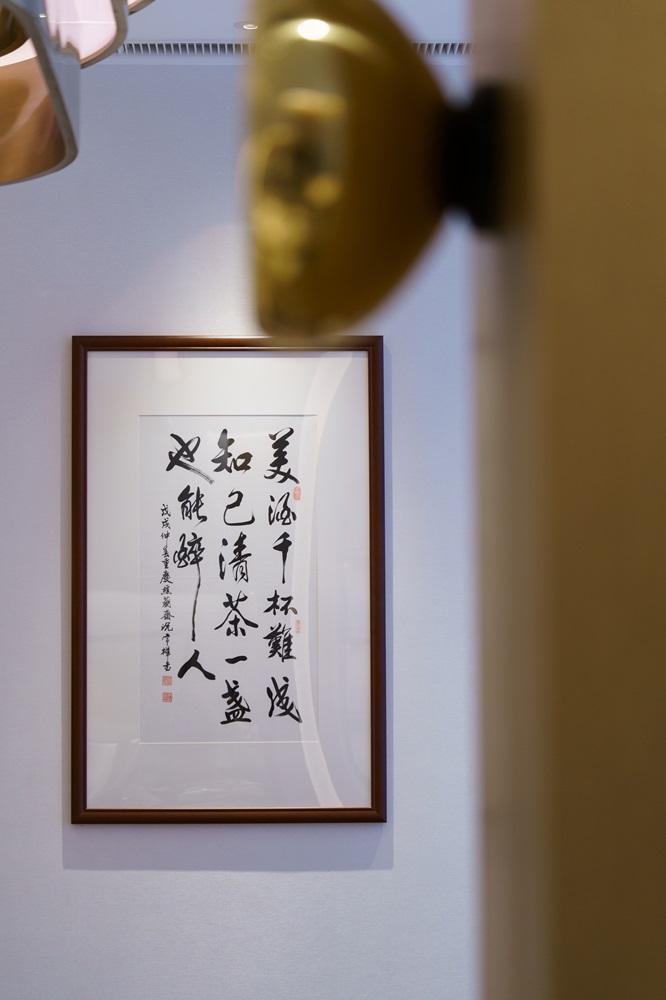 美酒千杯難成
知己清茶一盞
也能醉人
戊戌仲夏重慶蘭齋書